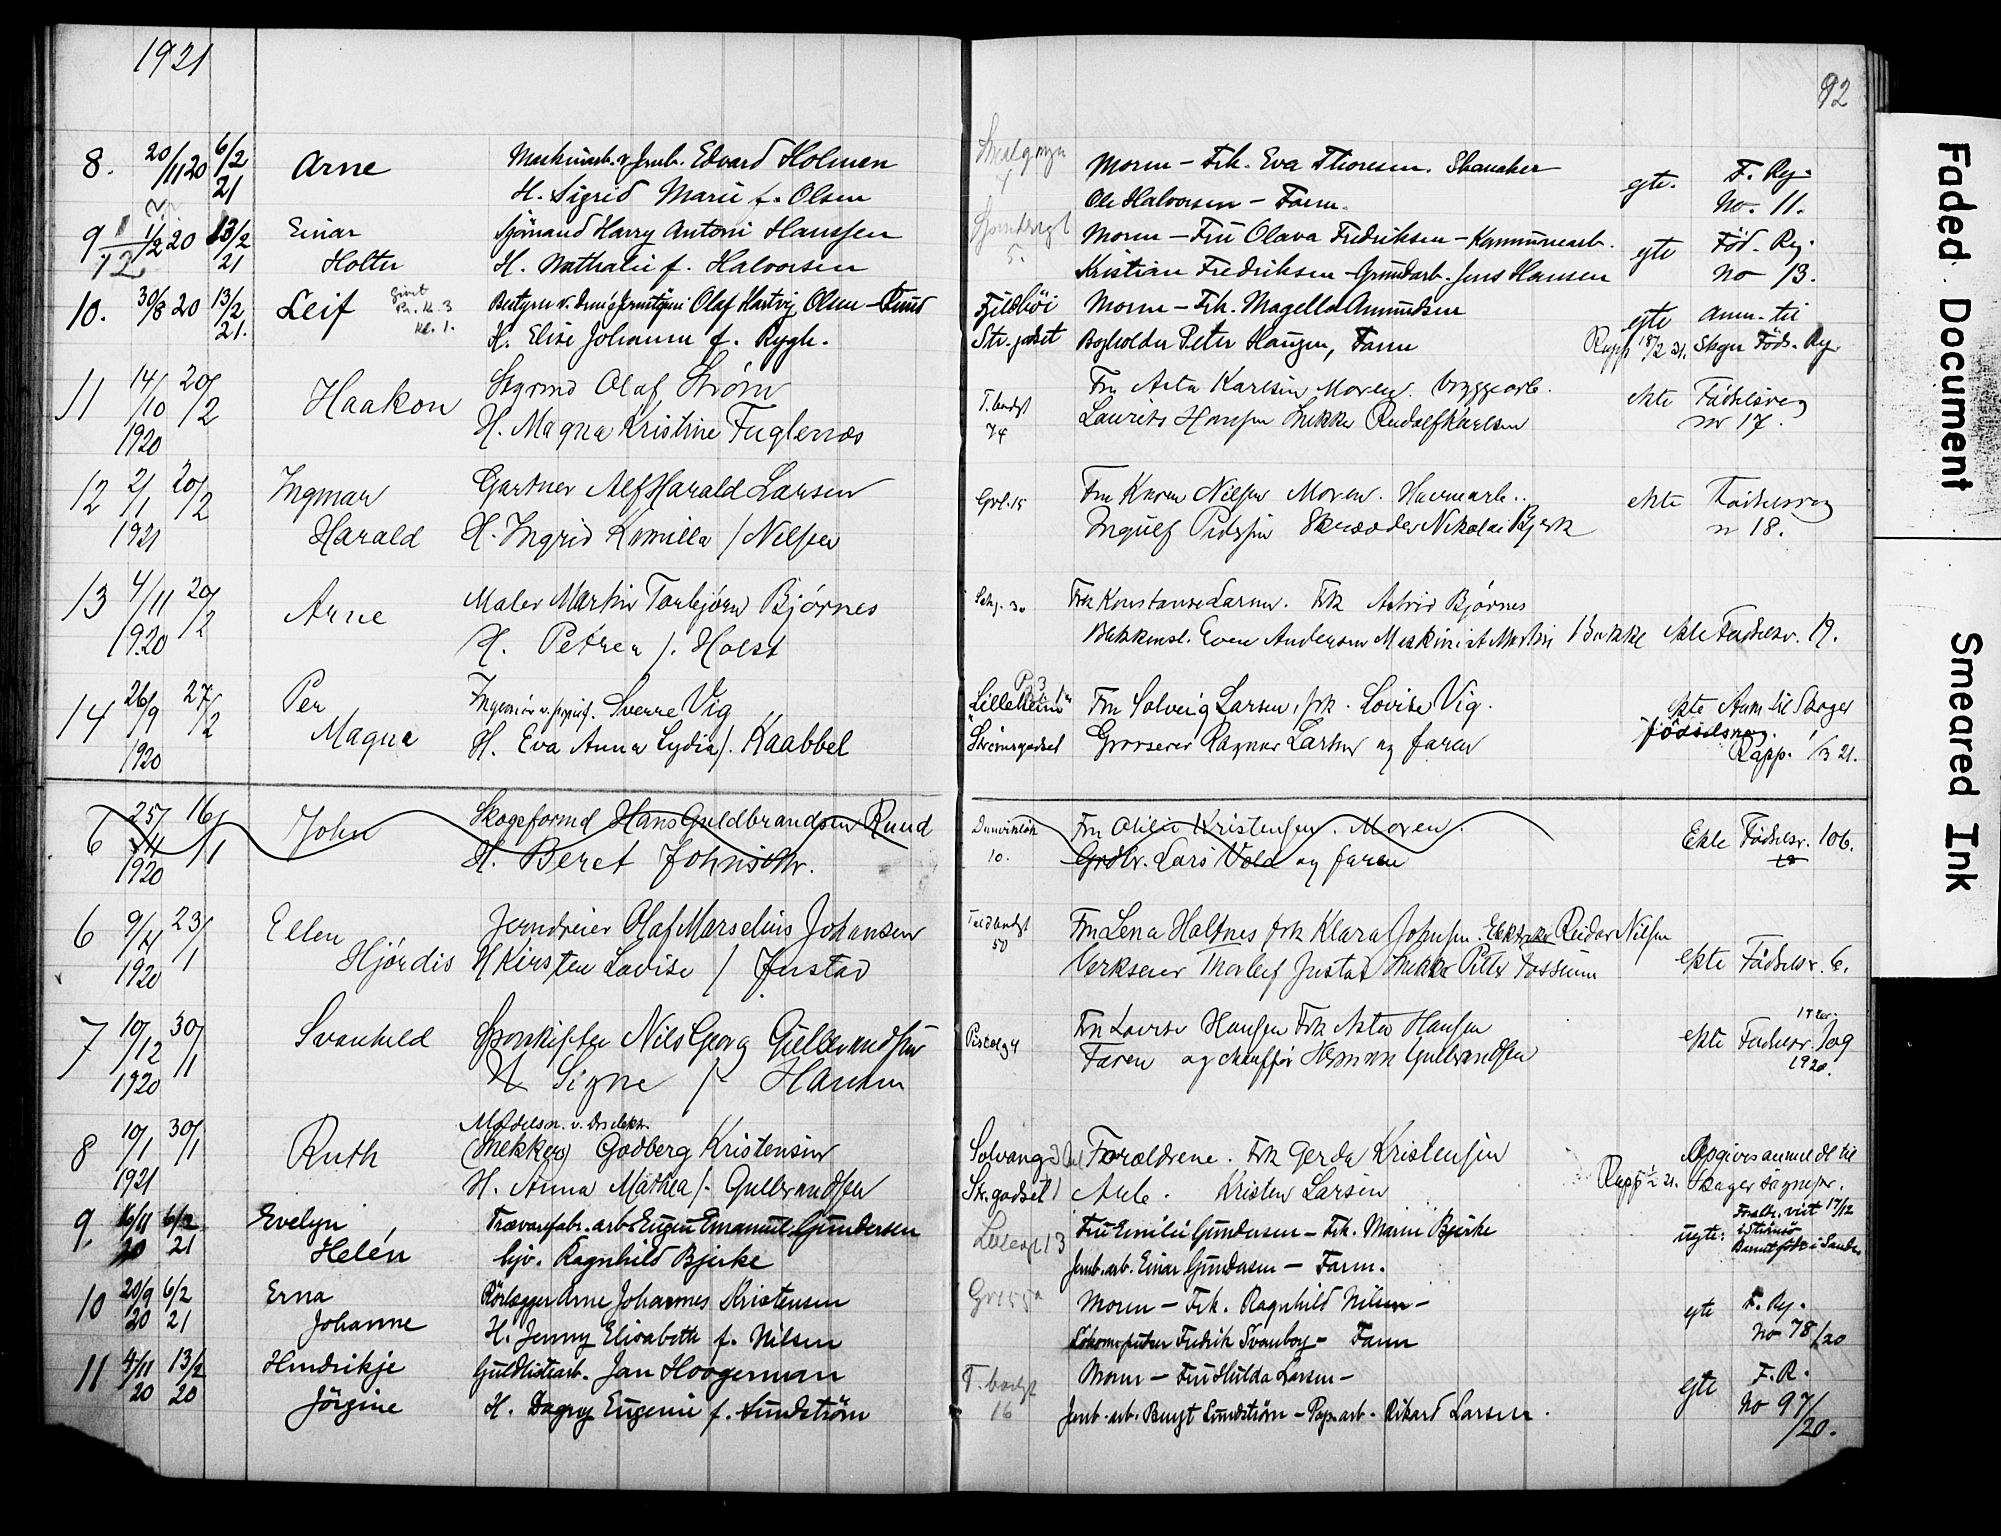 1921
92
8. 20/11 20 6/2 21 Arne Maskinarb. v. Jernb. Edvard Holmen
H. Sigrid Marie f. Olsen
Moren - Frk. Eva Thoresen. Skomaker
Ole Halvorsen - Faren.
egte. F. Reg. No. 11.
9 1/12 20 13/2 21 Einar Holter Sjömand Harry Antoni Hanssen
H. Nathalie f. Halvorsen
5. Moren - Fru Olava Fredriksen - Kommunearb.
Kristian Fredriksen - Grundarb. Jens Hansen
egte Föd. Reg. No 13.
10. 30/8 20 13/2 21. Leif Olaf Hartvig Olsen - Ruud
H. Elise Johanne f. Rygh.
Fjeldhöi Str. godset
Moren - Frk. Magella Amundsen
Bogholder Peter Haugen, Faren
egte anm. til Skger Föds. Reg.
Rapp 18/2 21.
11 14/10 1920 20/2 Haakon Olaf Strøm
H. Magna Kristine Fuglenæs
T. bodgt 74
Fru Asta Karlsen Moren. Bryggearb.
Laurits Hansen Snekker Rudolf Karlsen
ekte Fødselsreg nr 17.
12 2/1 1921 20/2 Ingmar Harald Gartner Alf Harald Larsen
H. Ingrid Kamilla f Nilsen
Grl. 15
Fru Karen Nilsen Moren. Havnearb..
Ingulf Skrædder Nikolai Bjerk
ekte Fødselsreg n 18.
13 4/11 1920 20/2 Arne Maler Martin Torbjørn Bjørnes
H. Petrea f. Holst
30
Frk Konstanse Larsen. Frk Astrid Bjørnes
Blikkensl. Even Andersen Maskinist Martin Bakke ekte Fødselsr. 19.
14 26/9 1920 27/2 Per Magna Ingeniør Sverre Vig
H. Eva Anna Lydia f. Kaabbel
"Lilleheim" Strømsgodset
Fru Solveig Larsen, frk. Lovise Vig.
Grosserer Ragnar Larsen og faren
ekte Anm til Skoger fødselsreg.
Rapp. 1/3 21.
6 25/11 1920 16/1 John Skogsformd Hans Guldbrandsen Ruud
H. Beret Johnsdtr.
10.
Fru Otilie Kristensen. Moren.
Grdbr. Lars Vold og faren
Ekte Fødselsr. 106.
6 9/11 1920 23/1 Ellen Hjørdis Jerndreier Olaf Marselius Johansen
H Kirsten Lovise f Justad
50
Fru Lena Haltnes frk Klara Johnsen. Reidar Nilsen
Verkseier Thorleif Justad Snekker Peter Fossum
ekte Fødselsr. 6.
7 10/12 1920 30/1 Svanhild Nils Georg Gulbrandsen
H Signe f Hansen
Fru Lovise Hansen Frk Asta Hansen
Faren og chauffør Herman Gulbrandsen
ekte Fødselsr. 109 1920.
8 10/1 1921 30/1 Ruth
(Snekker) Godberg Kristensen
H. Anna Mathea f. Gulbrandsen
Solvang Str. godset
Forældrene. Frk Gerda Kristensen
Arb. Kristen Larsen
Opgives anmeldt til Skoger sognepr.
9. 16/11 20 6/2 21 Evelyn Helén Trævarefabr. arb. Eugen Emanuel Gundersen
Ugv. Ragnhild Bjerke
Fru Emilie Gundersen - Frk. Marie Bjerke
Jernb. arb. Einar Gundersen - Faren.
uegte.
10 20/9 20 6/2 21 Erna Johanne Rörlægger Arne Johannes Kristensen
H. Jenny Elisabeth f. Nilsen
Moren - Frk. Ragnhild Nilsen -
Fredrik Svanborg - Faren
egte F. Reg. No 78/20
11 4/11 20 13/2 20 Hendrikje Jörgine Guldlistarb. Jan Hoogerman
H. Dagny Eugenie f. Lundström
T. bodgt 16
Moren - Fru Hulda Larsen -
Jernb. arb. Bengt Lundström - Pap. arb. Rikard Larsen.
egte F. R. No 97/20.
Faded Document
Smeared Ink